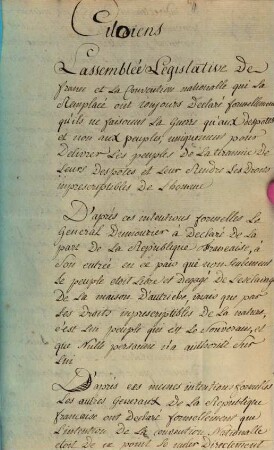 Citoiens
L'assemblée Législative De
france et La Convention nationalle qui La
Remplacé ont toujours Declaré formellement
qu'ils ne faisoient La Guerre qu'aux despottes
et non aux peuples, uniquement pour
Delivrer Les peuples De La tirannie De
Leurs Despotes et Leur Rendre Les Droits
imprescriptibles De L'homme
D'après ces intentions formelles Le
General Dumourier à Declaré De La
part De La Republique française, à
Son entrée en ce pais que non seulement
Le peuple étoit Libre et Degagé De L'esclavage
De La maison D'autriche, mais que par
Les Droits imprescriptibles De La nature,
c'est Un peuple qui est Le Souverain, et
que Nulle personne n'a authorité Sur
Lui
D'après ces memes intentions formelles
Les autres Generaux De La Republique
française ont Declaré formellement que
L'intention De La Convention Nationalle
étoit De ce point Se meler Directement